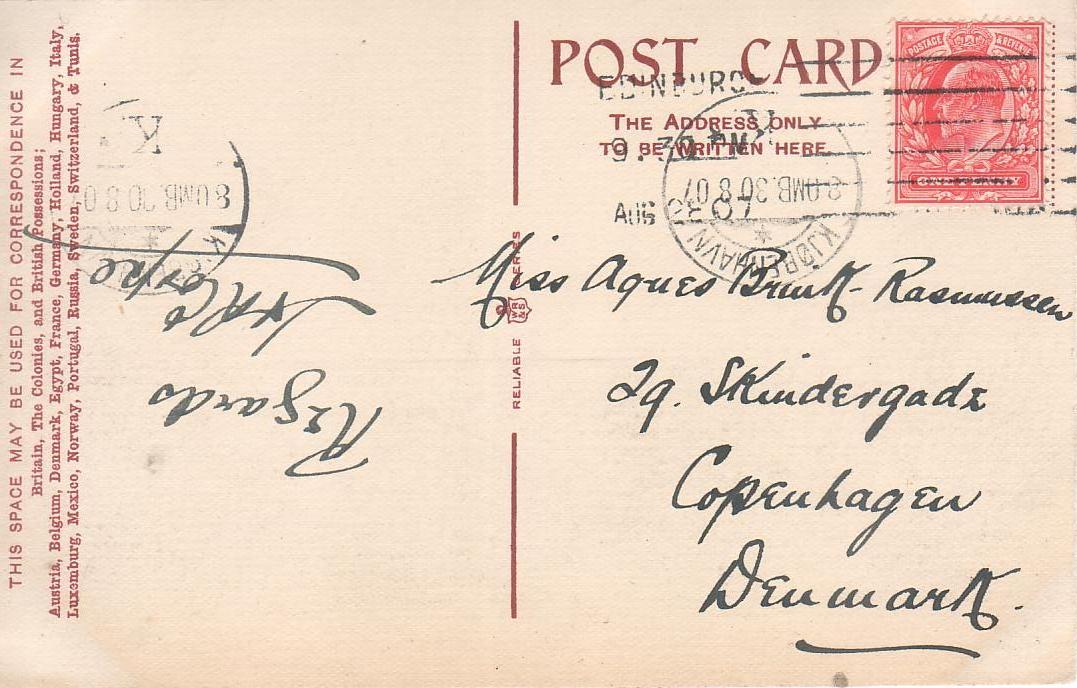 THIS SPACE MAY BE USED FOR CORRESPONDENCE IN
Britain, The Colonies, and British Possessions;
Austria, Belgium, Denmark, Egypt, France, Germany, Holland, Hungary, Italy,
Luxemburg, Mexico, Norway, Portugal, Russia, Sweden, Switzerland, & Tunis.
Regards
RELIABLE WR&S SERIES
POST CARD
THE ADDRESS ONLY
TO BE WRITTEN HERE.
POSTAGE & REVENUE
ONE PENNY
EDINBURGH
9.30 PM
AUG 07
KJØBENHAVN
8.OMB.30 8 07
K
8.OMB.30 8 0
K
Miss Agnes Brink-Rasmussen
29. Skindergade
Copenhagen
Denmark.